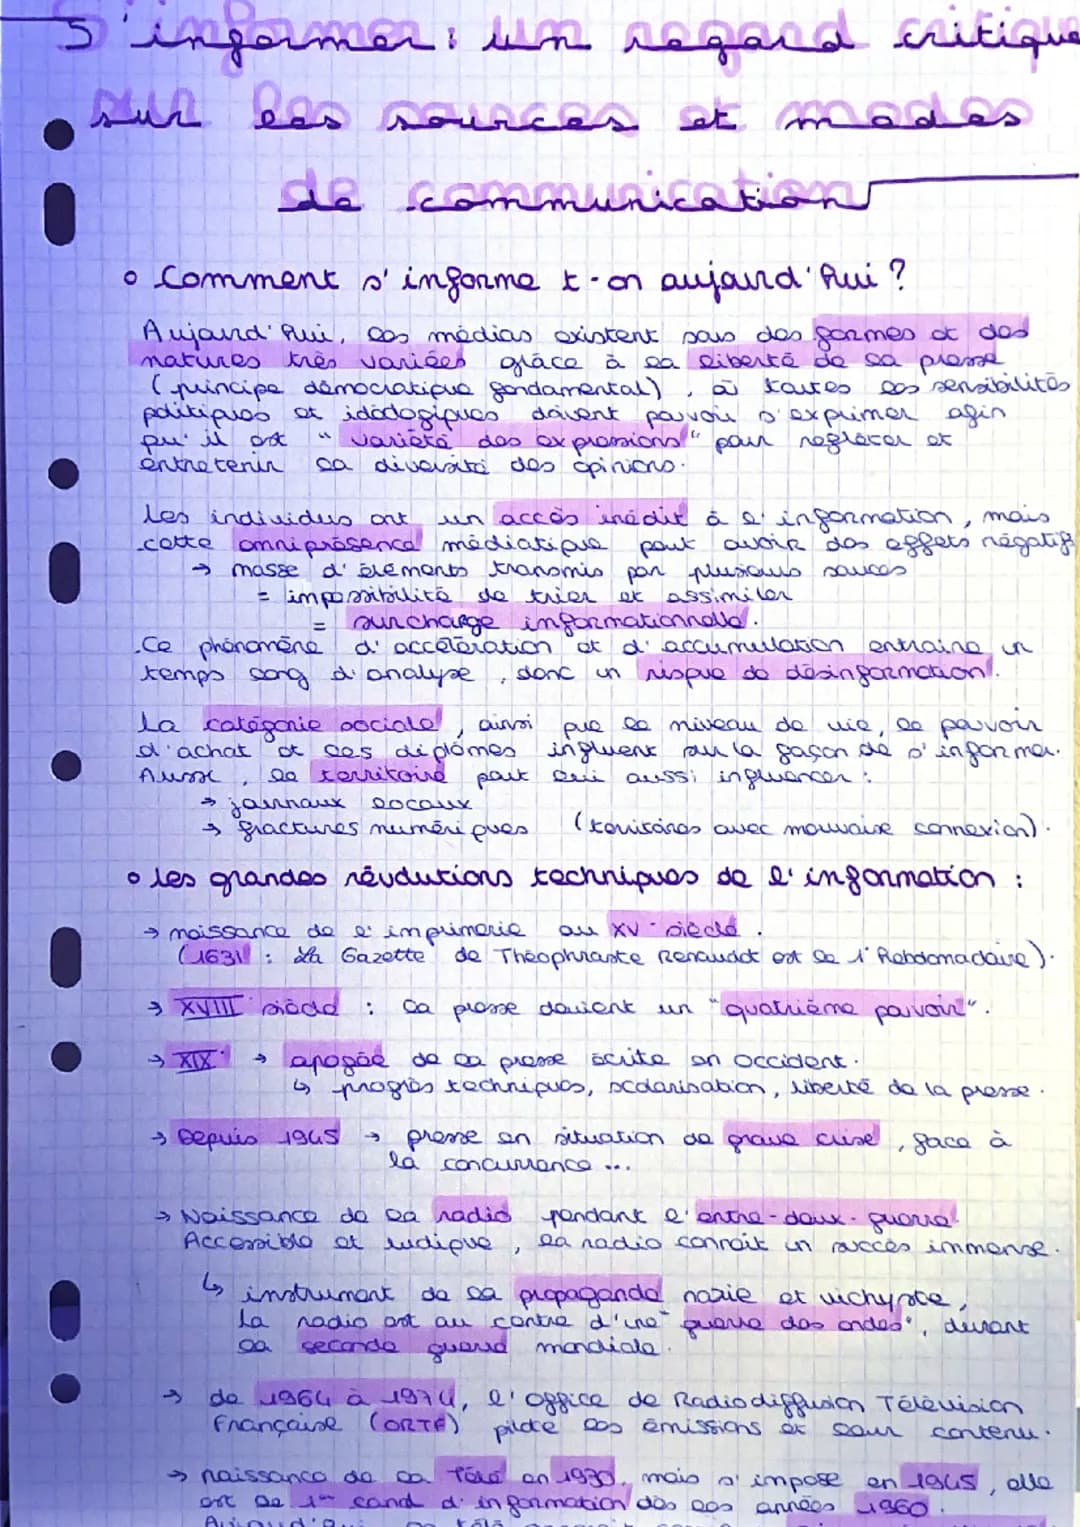 S'informer : un regard critique
sur les sources et modes
de communication
o Comment s'informe t-on aujourd'hui ?
Aujourd'hui, les médias existent sous des formes et des
natures très variées grâce à la liberté de la presse
(principe démocratique fondamental), où toutes les sensibilités
politiques et idéologiques doivent pouvoir s'exprimer afin
qu'il est "variété des expressions" pour refléter et
entretenir la diversité des opinions.
Les individus ont un accès inédit à l'information, mais
cette omniprésence médiatique peut avoir des effets négatifs
→ masse d'éléments transmis par plusieurs sources
= impossibilité de trier et assimiler
= surcharge informationnelle.
Ce phénomène d'accélération et d'accumulation entraine un
temps long d'analyse, donc un risque de désinformation.
La catégorie sociale, ainsi que le niveau de vie, le pouvoir
d'achat et les diplômes influent sur la façon de s'informer.
Aussi, le territoire peut lui aussi influencer :
→ journaux locaux
→ fractures numériques (territoires avec mauvaise connexion).
o Les grandes révolutions techniques de l'information :
→ naissance de l'imprimerie au XV siècle.
(1631 : La Gazette de Théophraste Renaudot est le 1 hebdomadaire).
→ XVIII siècle : la presse devient un "quatrième pouvoir".
→ XIX → apogée de la presse écrite en Occident.
↳ progrès techniques, scolarisation, liberté de la presse.
→ Depuis 1945 → presse en situation de grave crise, face à
la concurrence ...
→ Naissance de la radio pendant l'entre-deux-guerre.
Accessible et ludique, la radio connait un succès immense.
↳ instrument de la propagande nazie et vichyste,
la radio est au centre d'une "guerre des ondes", durant
la seconde guerre mondiale.
→ de 1964 à 1974, l'Office de Radiodiffusion Télévision
Française (ORTF) pilote les émissions et leur contenu.
→ naissance de la Télé en 1930, mais s'impose en 1945, elle
est le 1er canal d'information dès les années 1960.
Aujourd'hui la télé